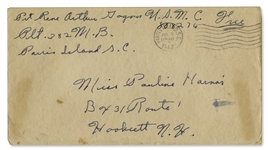 Pvt. Rene Arthur Gagnon U.S.M.C. Free
Plt. 382 M.B.
Parris Island S.C.
Miss Pauline Harnois
Box 31 Route 1
Hooksett N.H.